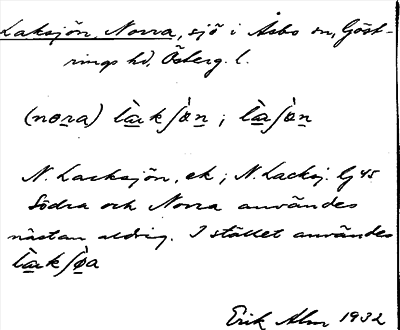 Laksjön, Norra, sjö i Åsbo sn, Göst-
rings hd, Österg. l.
(nora) làksʃön ; làʃön
N. Lacksjön, ek ; N. Lacksj. Gj 45
Södra och Norra användes
nästan aldrig. I stället användes
làkʃöa
Erik Alm 1932